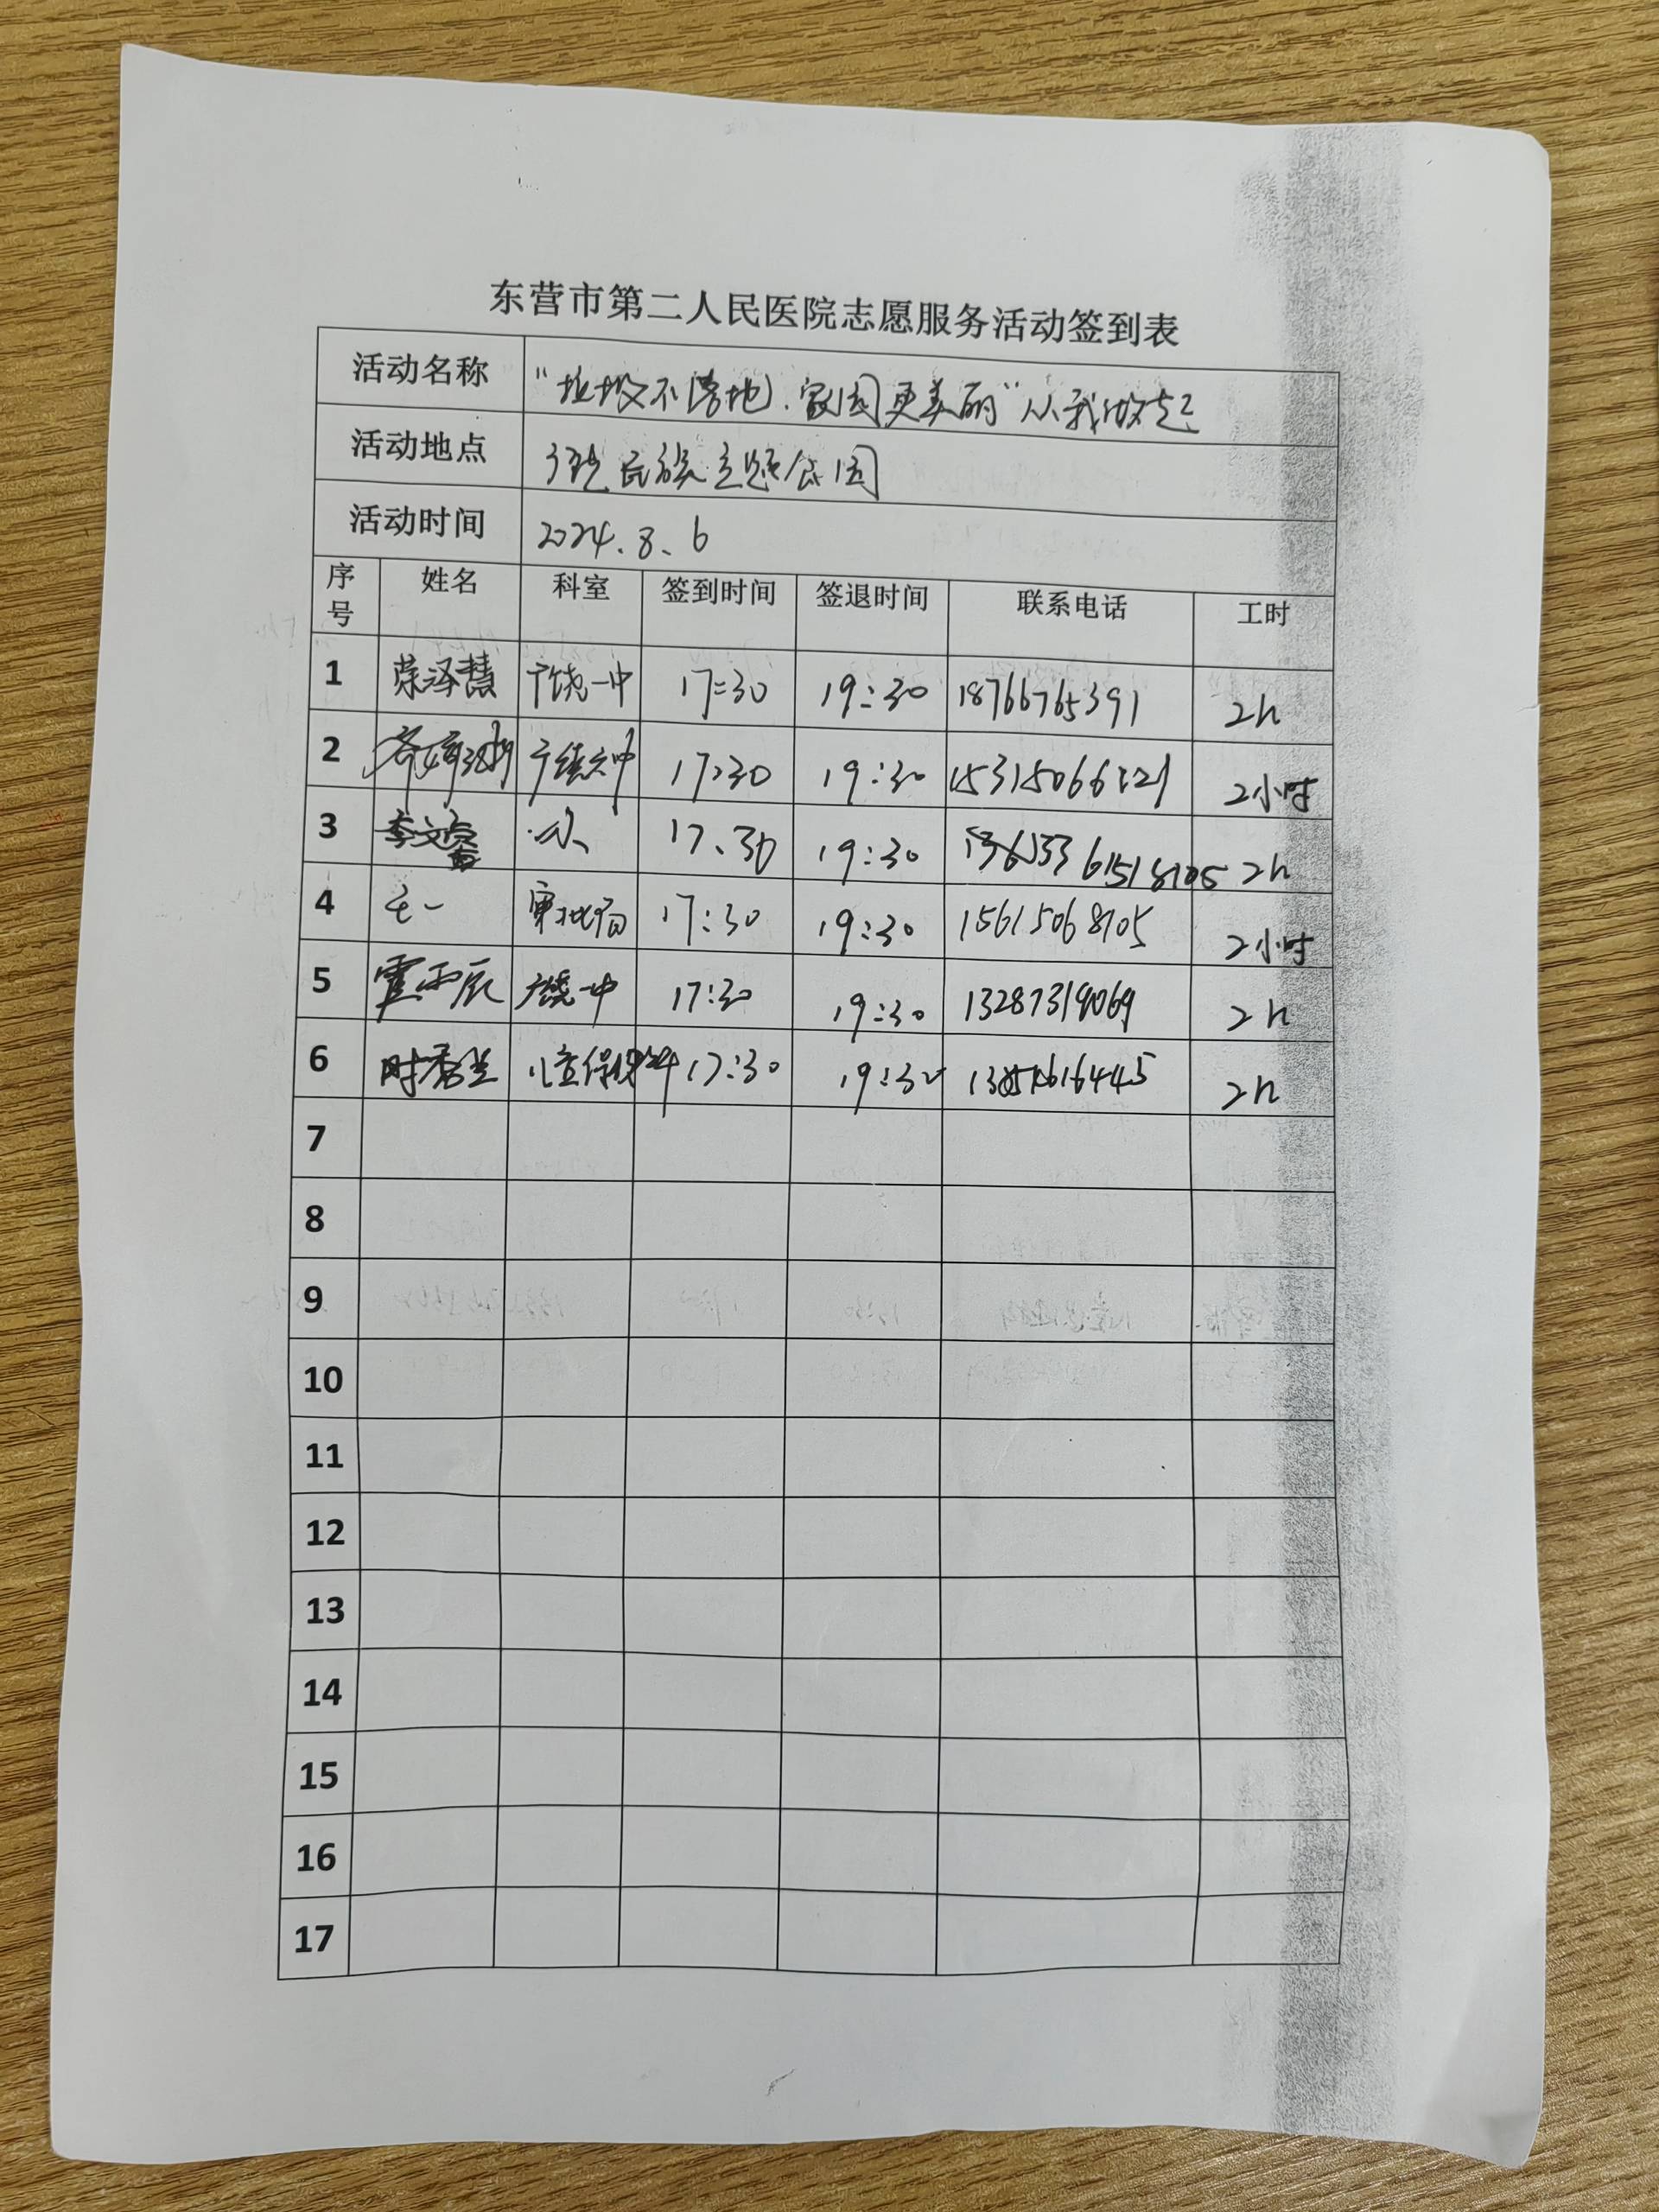 东营市第二人民医院志愿服务活动签到表
活动名称 "垃圾不落地、家园更美丽"从我做起
活动地点 民族主题公园
活动时间 2024.8.6
序号 姓名 科室 签到时间 签退时间 联系电话 工时
1 荣泽慧 广饶一中 17:30 19:30 18766765391 2h
2 广饶六中 17:30 19:30 2小时
3 李文 17.30 19:30 2h
4 审批局 17:30 19:30 15615068105 2小时
5 霍雨辰 广饶一中 17:30 19:30 13287319069 2h
6 时秀兰 儿童保健科 17:30 19:30 2h
7
8
9
10
11
12
13
14
15
16
17